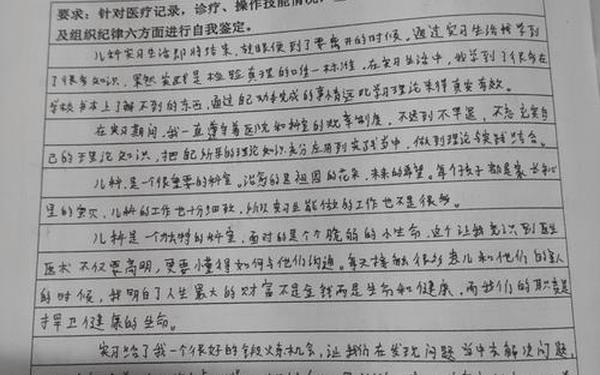 要求：针对医疗记录，诊疗、操作技能情况，
及组织纪律六方面进行自我鉴定。
儿科实习生活即将结束，转眼便到了要离开的时候。通过实习生活我学到
了很多知识，果然实践是检验真理的唯一标准，在实习生活中，我学到了很多在
学校书本上了解不到的东西，通过自己动手完成的事情远比学习理论来得真实有效。
在实习期间，我一直遵守着医院和科室的规章制度，不迟到不早退，不忘充实自
己的理论知识，把自己所学的理论知识充分应用到实践当中，做到理论与实践结合。
儿科，是一个很重要的科室。治愈的是祖国的花朵，未来的希望。每个孩子都是家长心
里的宝贝，儿科的工作也十分细致，所以实习生能做的工作也不是很多。
儿科是一个独特的科室，面对的是个个脆弱的小生命，这个让我意识到医生
医术不仅要高明，更要懂得如何与他们沟通。每天接触很多患儿和他们的家人
的时候，我明白了人生最大的财富不是金钱而是生命和健康，而我们的职责是
捍卫健康的生命。
实习给了我一个很好的锻炼机会，让我们在发现问题当中去解决问题，